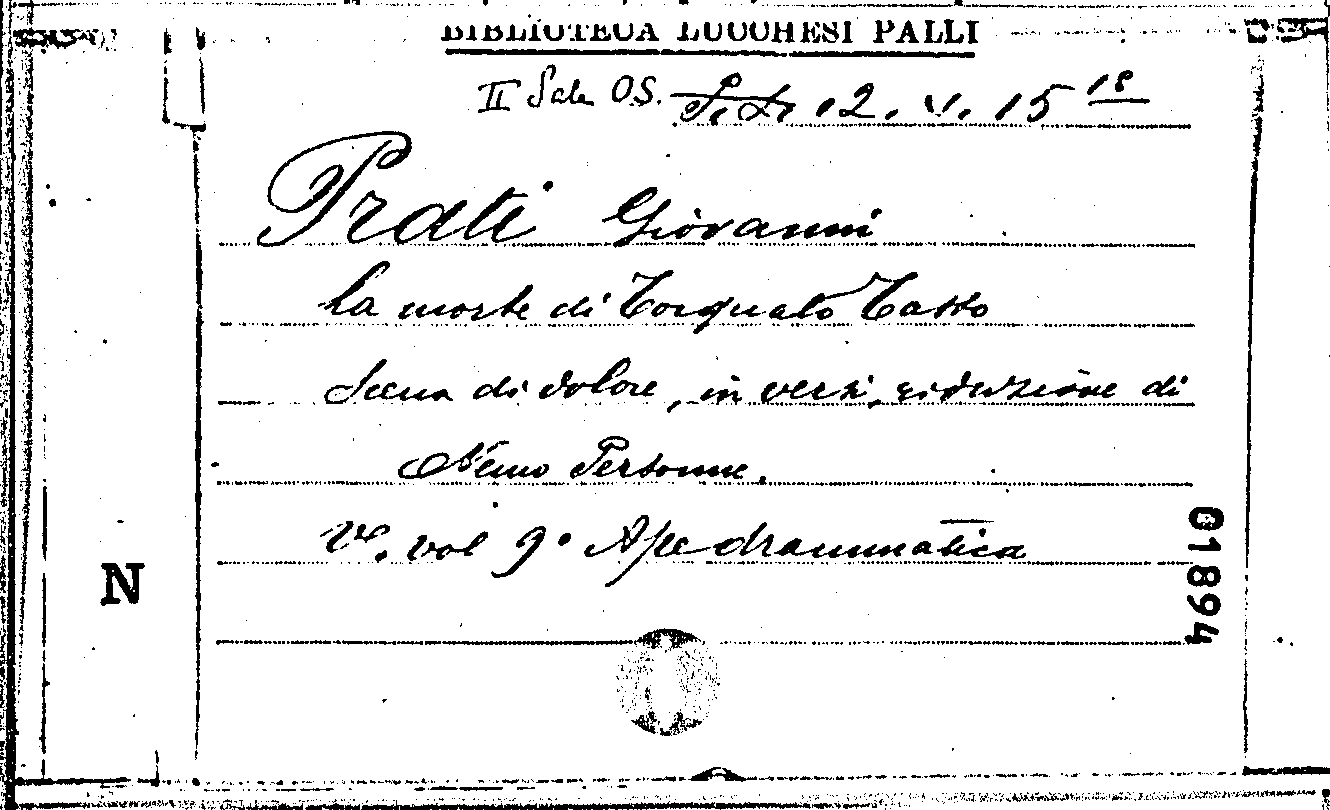 BIBLIOTECA LUCCHESI PALLI
II Sala O.S. 12. V. 15 18
Prati Giovanni
La morte di Torquato Tasso
Scena di dolore, in versi, riduzione di
Nemo Personne.
Ve. vol 9° Ape drammatica
N
01894